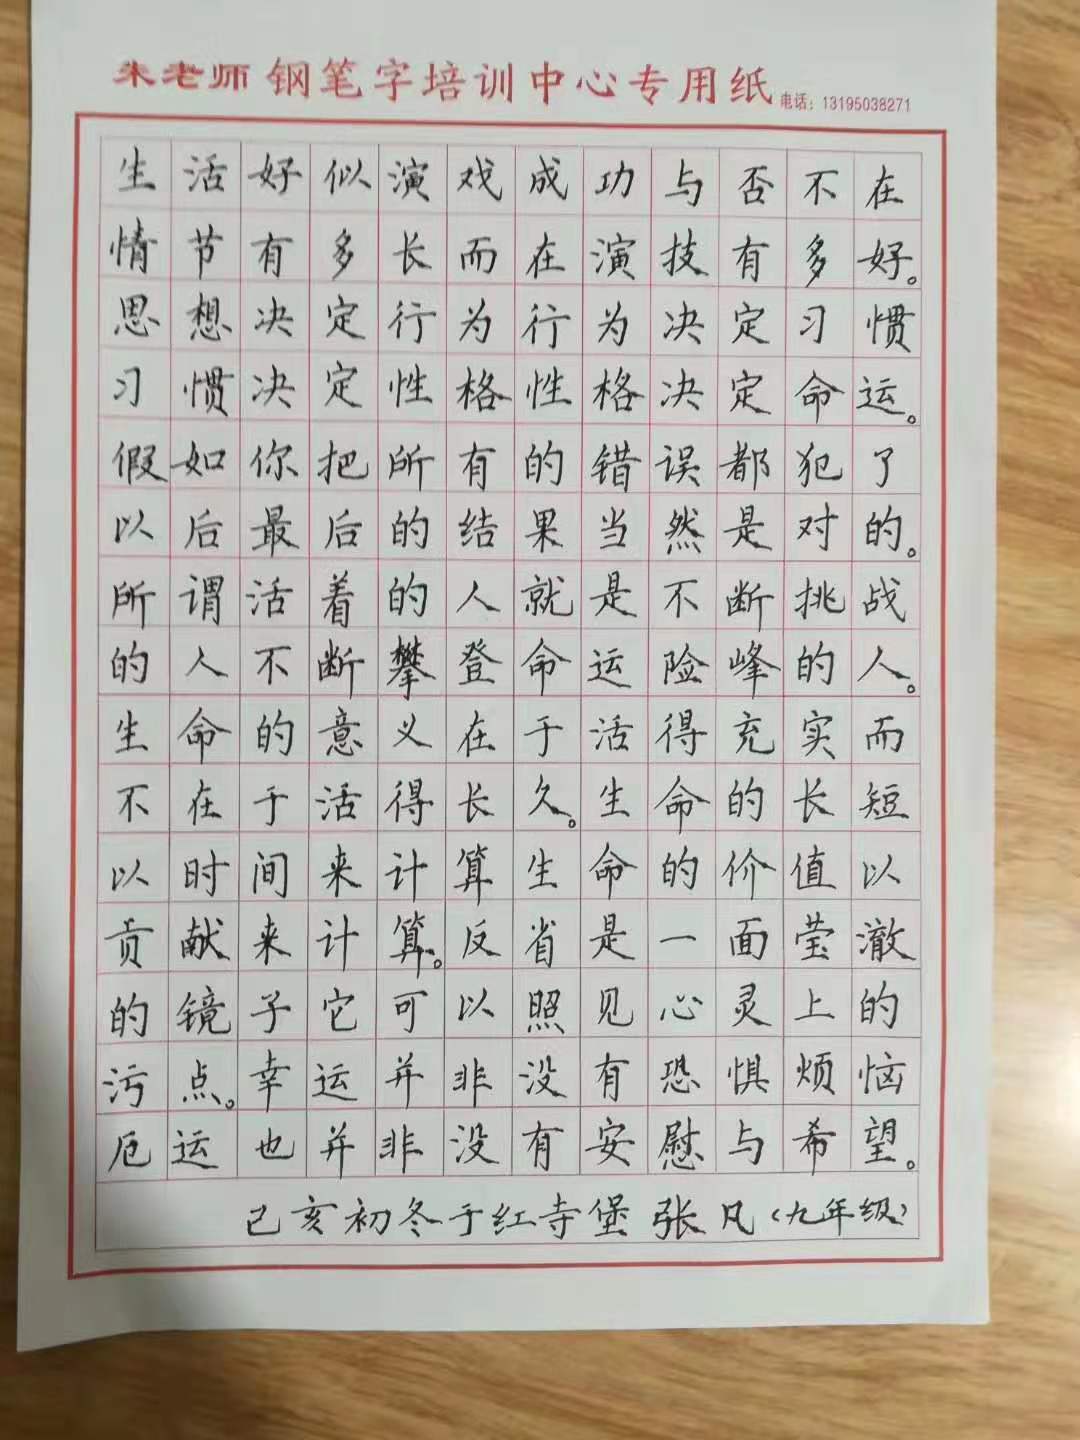 朱老师 钢笔字培训中心专用纸 电话：13195038271
生活好似演戏成功与否不在
情节有多长而在演技有多好。
思想决定行为行为决定习惯
习惯决定性格性格决定命运。
假如你把所有的错误都犯了
以后最后的结果当然是对的。
所谓活着的人就是不断挑战
的人不断攀登命运险峰的人。
生命的意义在于活得充实而
不在于活得长久。生命的长短
以时间来计算生命的价值以
贡献来计算。反省是一面莹澈
的镜子它可以照见心灵上的
污点。幸运并非没有恐惧烦恼
厄运也并非没有安慰与希望。
己亥初冬于红寺堡 张凡（九年级）